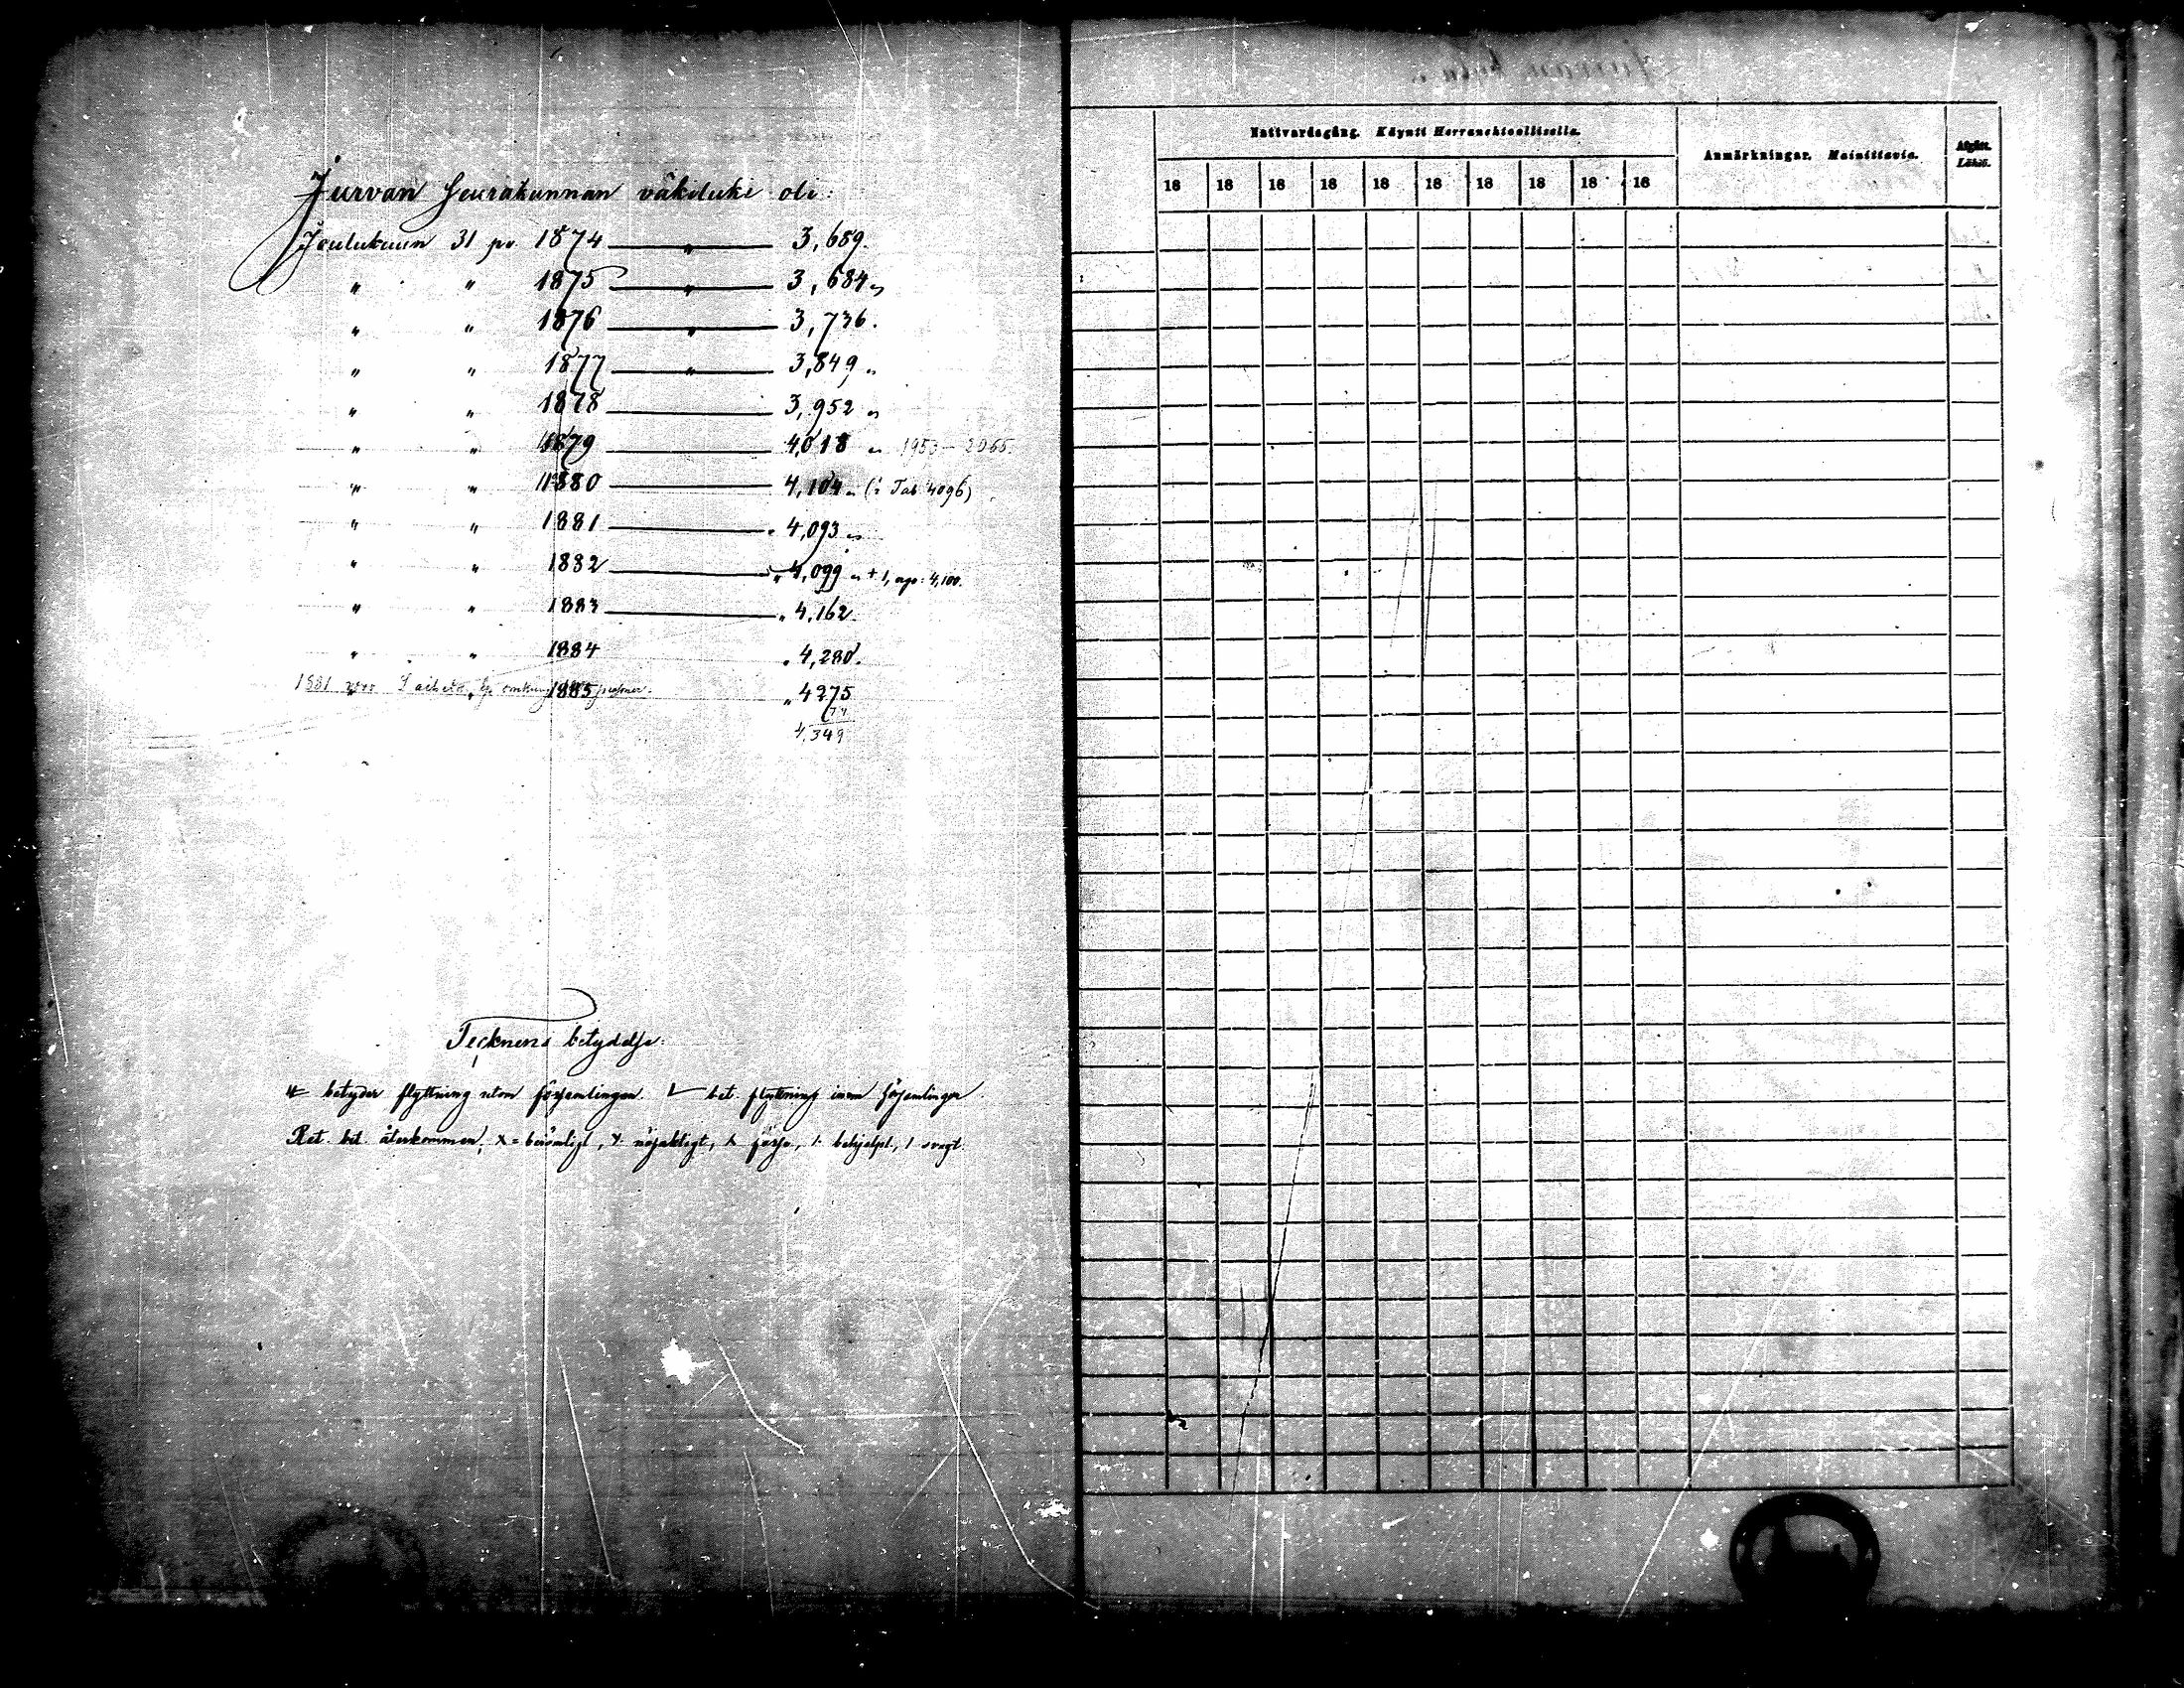 Jurvan Seurakunnan väkiluku oli:
Joulukuun 31 pv. 1874 — „ — 3,689.
„ „ 1875 — „ — 3,684 „
„ „ 1876 — „ — 3,736.
„ „ 1877 — „ — 3,849 „
„ „ 1878 — 3,952 „
„ „ 1879 — 4,018 „ 1953 — 2065.
„ „ 1880 — 4,104 „ (i Tab. 4096)
„ „ 1881 — „ 4,093 „
„ „ 1882 — „ 4,099 „ + 1, 4,100.
„ „ 1883 — „ 4,162.
„ „ 1884 „ 4,280.
1881 „ 1885 „ 4275
74
4,349
Tecknens betydelse:
betyder flyttning utom församlingen. bet. flyttning inom församlingen.
Ret. bet. återkommen, x = berömligt, nöjaktigt, försv., behjelpl., svagt.
Nattvardsgång. Käynti Herranehtoollisella.
Anmärkningar. Mainittavia.
Afgått.
Lähti.
18 18 18 18 18 18 18 18 18 18